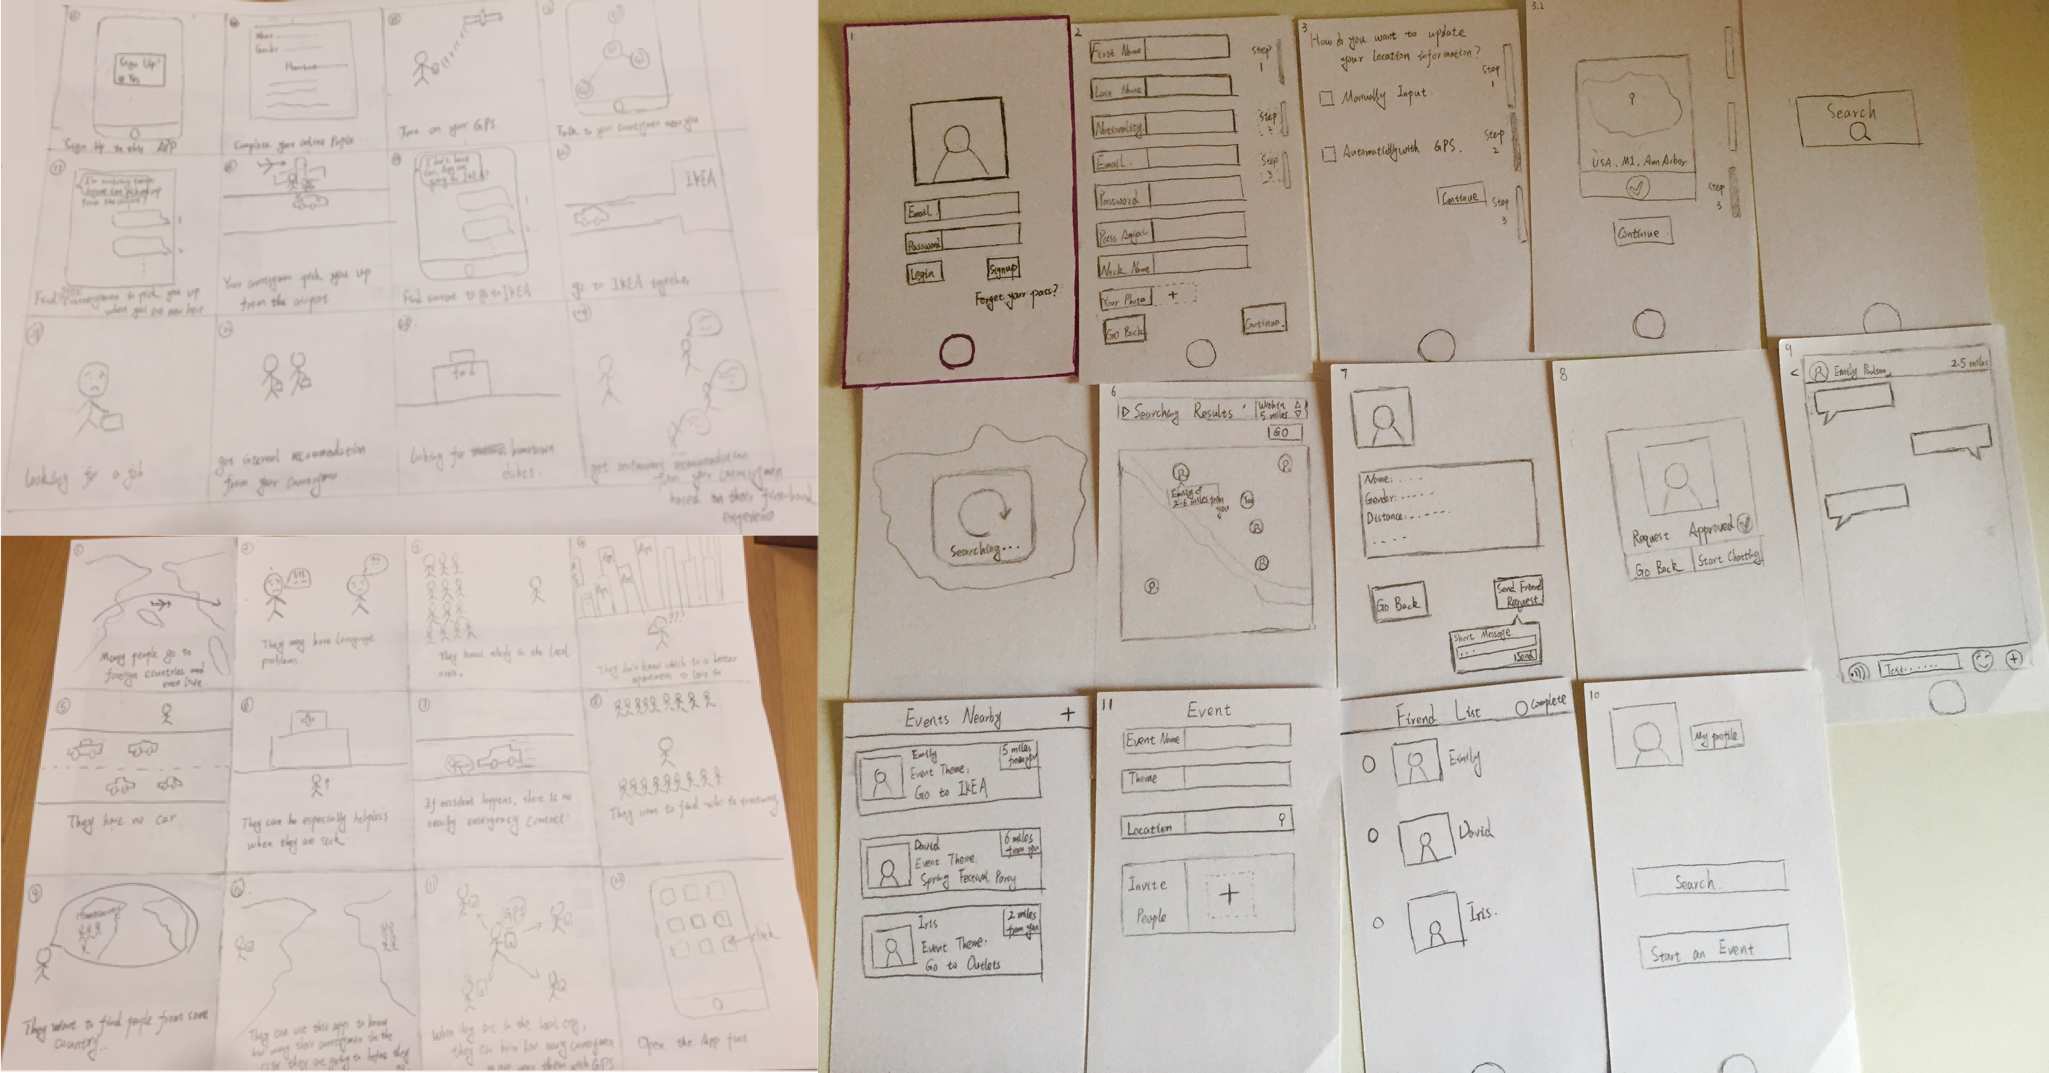 Sign Up!
Yes
Sign Up in this APP
Name
Gender
Complete your online Profile
Turn on your GPS
Talk to your countrymen near you
from the airport?
Find countrymen to pick you up
when you are new here
Your countrymen pick you up
from the airport
going to IKEA?
Find someone to go to IKEA
IKEA
go to IKEA together
Looking for a job
got internal recommendation
from your countrymen
Looking for hometown
dishes.
got restaurant recommendation
from your countrymen
based on their first-hand
experience
1
Many people go to
foreign countries and
2
They may have language
problems.
3
They knows nobody in the local
area.
They don't know which is a better
apartment to live in
5
They have no car
6
They can be especially helpless
when they are sick
If accident happens, there is no
nearby emergency contact.
8
They want to find who is traveling
9
Hometown
They want to find people from same
country.
They can use this app to know
how many their countrymen in the
city they are going to before they
go
11
GPS
When they are in the local city,
they can know how many countrymen
near them with GPS
12
click
Open the App first
1
Email
Password
Login
Signup
Forget your pass?
2
First Name
Last Name
Nationality
Email.
Password
Pass Again
Nick Name
Your Photo +
Go Back
Continue
Step
1
Step
2
Step
3
3
How do you want to update
your location information?
Manually Input
Automatically with GPS.
Continue
Step
1
Step
2
Step
3
3.2
USA. MI. Ann Arbor
Continue
Step
3
Search
Searching...
6
Searching Results
Within
5 miles
GO
Emily
2.6 miles from
you
You
7
Name: ....
Gender: ....
Distance: ....
Go Back
Send Friend
Request
Short Message
...
Send
8
Request Approved
Go Back
Start Chatting
9
<
Emily Paulson
2.5 miles
Text......
+
Events Nearby +
Emily
Event Theme.
Go to IKEA
5 miles
from you
David
Event Theme.
Spring Festival Party
6 miles
from you
Iris
Event Theme.
Go to Outlets
2 miles
from you
11
Event
Event Name
Theme
Location
Invite
People
+
Firend List
Complete
Emily
David
Iris.
10
My profile
Search
Start an Event